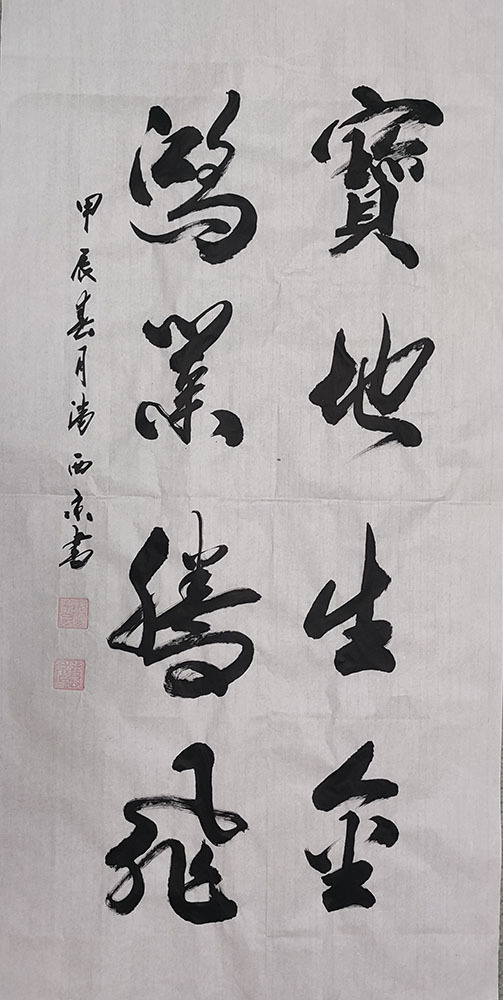 寶地生金
鴻業騰飛
甲辰春月涛西京書